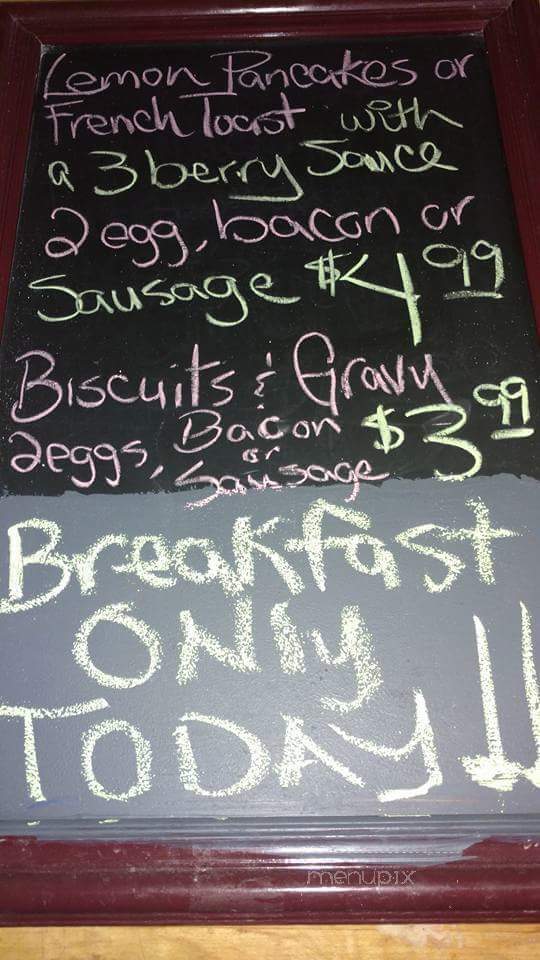 Lemon Pancakes or
French Toast with
a 3 berry Sauce
2 egg, bacon or
Sausage $4.99
Biscuits & Gravy
2 eggs, Bacon $3.99
or
Sausage
Breakfast
ONly
TODAY!!
menupix